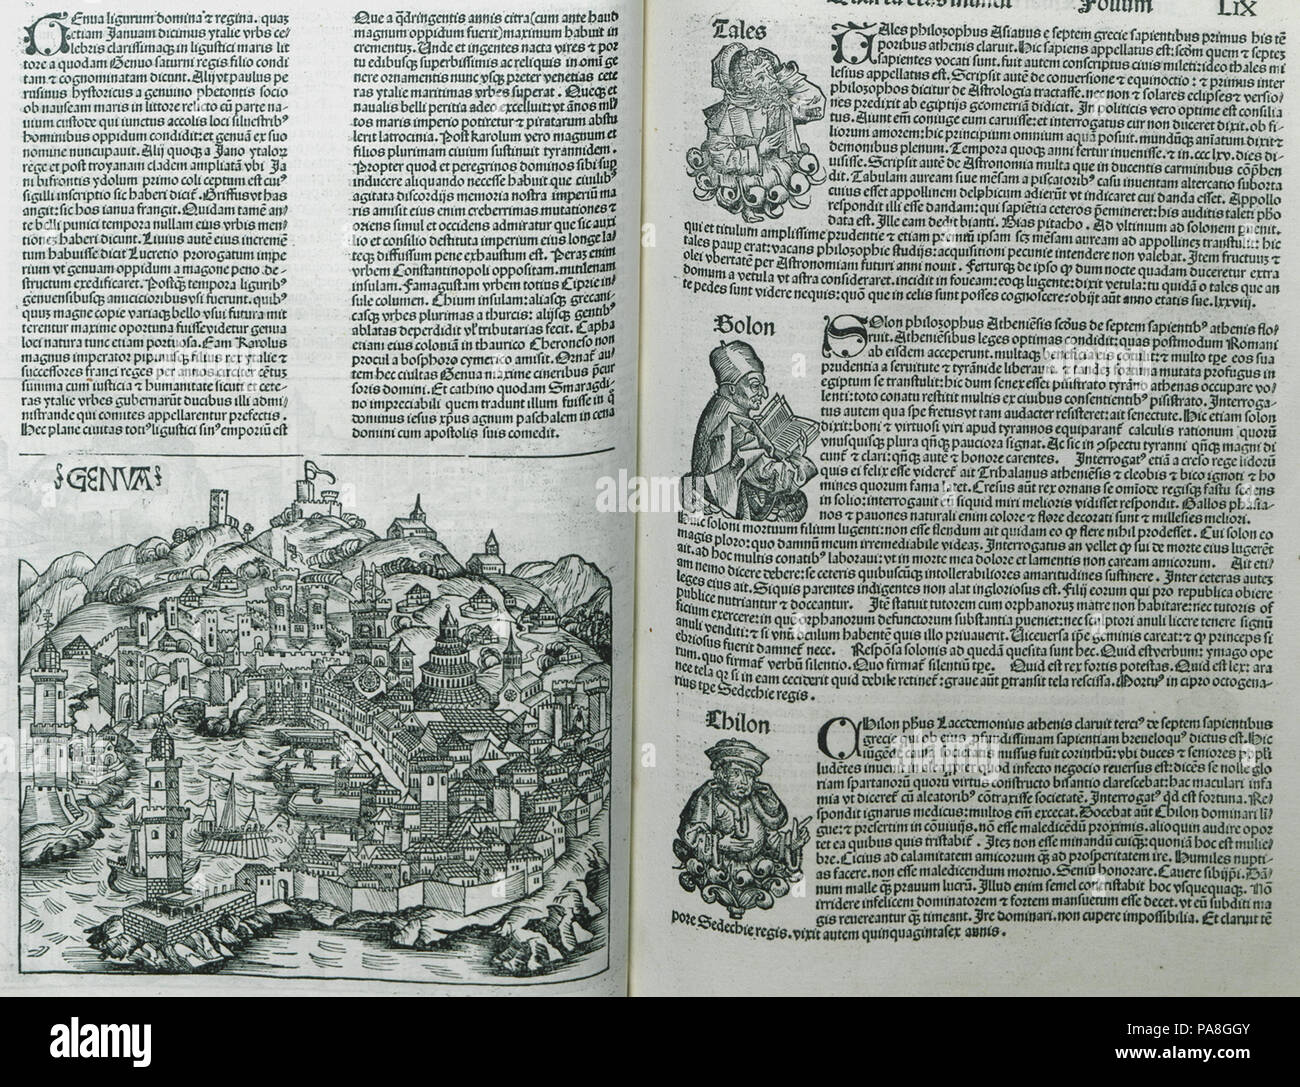 GEnua ligurum domina ⁊ regina. quaȝ
etiam Januam dicimus ytalie vrbs ce⸗
lebris clarissimaqȝ in ligustici maris lit
tore a quodam Genuo saturni regis filio condi
tam ⁊ cognominatam dicunt. Alij vt paulus pe
rusinus hystoricus a genuino phetontis socio
ob nauseam maris in littore relicto cū parte na⸗
uium custode qui iunctus accolis loci siluestribꝰ
hominibus oppidum condidit: et genuā ex suo
nomine nuncupauit. Alij quoqȝ a Jano ytalorȝ
rege et post troyanam cladem ampliatā vbi Ja
ni bifrontis ydolum primo coli ceptum est cuiꝰ
sigilli inscriptio sic haberi dicit̄. Griffus vt has
angit: sic hos ianua frangit. Quidam tamē an⸗
te belli punici tempora nullam eius vrbis men⸗
tioneȝ haberi dicunt. Liuius autē eius increméꝰ
tum habuisse dicit Lucretio prorogatum impe
rium vt genuam oppidum a magone peno. de⸗
structum exedificaret. Postqȝ tempora liguribꝰ
genuensibusqȝ amicicioribus vsi fuerunt. quibꝰ
quuȝ magne copie variaqȝ bello vsui futura mit
terentur maxime oportuna fuisse videtur genua
loci natura tunc etiam portuosa. Eam Karolus
magnus imperator pipinusqȝ filius rex ytalie ⁊
successores franci reges per annos circiter cētuȝ
summa cum iusticia ⁊ humanitate sicuti et cete⸗
ras ytalie vrbes gubernarunt ducibus illi admi⸗
nistrande qui comites appellarentur prefectis.
Hec plane ciuitas totiꝰ ligustici sinꝰ emporiū est
Que a q̄dringentis annis citra (cum ante haud
magnum oppidum fuerit) maximum habuit in
crementuȝ. Unde et ingentes nacta vires ⁊ por
tu edibusqȝ superbissimis ac reliquis in omī ge
nere ornamentis nunc vsqȝ preter venetias cete
ras ytalie maritimas vrbes superat. Queqȝ et
naualis belli peritia adeo excelluit: vt ānos ml̓
tos maris imperio potiretur ⁊ piratarum abstu
lerit latrocinia. Post karolum vero magnum et
filios plurimam ciuium sustinuit tyrannidem.
Propter quod et peregrinos dominos sibi sup
inducere aliquando necesse habuit que ciuilibꝰ
agitata discordijs memoria nostra imperiū ma
ris amisit eius enim creberrimas mutationes ⁊
oriens simul et occidens admiratur que sic auxi
lio et consilio destituta imperium eius longe la⸗
teqȝ diffusum pene exhaustum est. Peraȝ enim
vrbem Constantinopoli oppositam. mitilenam
insulam. Famagustam vrbem totius Ciprie in⸗
sule columen. Chium insulam: aliasqȝ grecani⸗
casqȝ vrbes plurimas a thurcis: alijsqȝ gentibꝰ
ablatas deperdidit vl̓ tributarias fecit. Capha
etiam eius coloniā in thaurico Cheroneso non
procul a bosphoro cymerico amisit. Ornat̄ au⸗
tem hec ciuitas Genua maxime cineribus p̄cur
soris domini. Et cathino quodam Smaragdi⸗
no impreciabili quem tradunt illum fuisse in q̄
dominus iesus xp̄us agnum paschalem in cena
domini cum apostolis suis comedit.
GENVA
Folium LIX
Tales
TAles philosophus Asianus e septem grecie sapientibus primus his tē
poribus athenis claruit. Hic sapiens appellatus est: scd̄m quem ⁊ septeȝ
sapientes vocati sunt. fuit autem conscriptus ciuis mileti: ideo thales mi
lesius appellatus est. Scripsit autē de conuersione ⁊ equinoctio: ⁊ primus inter
philosophos dicitur de Astrologia tractasse. nec non ⁊ solares eclipses ⁊ versio⸗
nes predixit ab egiptijs geometriā didicit. In politicis vero optime est consilia
tus. Aiunt eum coniuge eum caruisse: et interrogatus cur non duceret dixit. ob fi⸗
liorum amorem: hic principium omnium aquā posuit. mundūqȝ aīatum dixit ⁊
demonibus plenum. Tempora quoqȝ anni fertur inuenisse. ⁊ in .ccc lxv. dies di⸗
uisisse. Scripsit autē de Astronomia multa que in ducentis carminibus cōp̄hen
dit. Tabulam auream siue mēsam a piscatoribꝰ casu inuentam altercatio suborta
cuius esset appollinem delphicum adierūt vt indicaret cui danda esset. Appollo
respondit illi esse dandam: qui sapiētia ceteros p̄emineret: his auditis taleti pꝰo
data est. Ille eam dedit bianti. Bias pitacho. Ad vltimum ad solonem puenit.
qui et titulum amplissime prudentie ⁊ etiam premiū ipsam scȝ mēsam auream ad appollineȝ transtulit: hic
tales paup erat: vacans philosophie studijs: acquisitioni pecunie intendere non valebat. Item fructuuȝ ⁊
olei vbertatē per Astronomiam futuri anni nouit. Ferturqȝ de ipso ꝙ dum nocte quadam duceretur extra
domum a vetula vt astra consideraret. incidit in foueam: eoqȝ lugente: dixit vetula: tu quidā o tales que an
te pedes sunt videre nequis: quō que in celis sunt posses cognoscere: obijt aūt anno etatis sue .lxxviij.
Solon
SOlon philosophus Atheniēsis scd̄us de septem sapientibꝰ athenis flo⸗
ruit. Atheniēsibus leges optimas condidit quas postmodum Romani
ab eisdem acceperunt. multaqȝ beneficia eis cōtulit: ⁊ multo tpe eos sua
prudentia a seruitute ⁊ tyrānide liberauit. ⁊ tandeȝ fortuna mutata profugus in
egiptum se transtulit: hic dum senex esset pisistrato tyrāno athenas occupare vo⸗
lenti: toto conatu restitit multis ex ciuibus consentientibꝰ pisistrato. Interroga⸗
tus autem qua spe fretus vt tam audacter resisteret: ait senectute. Hic etiam solon
dixit: boni ⁊ virtuosi viri apud tyrannos equiparant̄ calculis rationum quorū
vnusquisqȝ plura qn̄qȝ pauciora signat. Ac sic in ꝯspectu tyranni qn̄qȝ magni di
cunt̄ ⁊ clari: qn̄qȝ aute ⁊ honore carentes. Interrogatꝰ etiā a creso rege lidorū
quis ei felix esse videret̄ ait Tribalanus atheniēsis ⁊ cleobis ⁊ bico ignoti ⁊ ho
mines quorum fama latet. Cresius aūt rex ornans se om̄ode regisqȝ fastu sedens
in folio: interrogauit cū siquid miri melioris vidisset respondit. Gallos phasia⸗
nos ⁊ pauones naturali enim colore ⁊ flore decorati sunt ⁊ millesies meliori.
Huic soloni mortuum filium lugenti: non esse flendum ait quidam eo ꝙ flere nihil prodesset. Cui solon eo
magis ploro: quo damnū meum irremediabile videaȝ. Interrogatus an vellet ꝙ sui de morte eius lugerēt
ait. ab hoc multis conatibꝰ laboraui: vt in morte mea dolore et lamentis non caream amicorum. Ait eti⸗
am nemo dicere debere: se ceteris quibuscūqȝ intollerabiliores amaritudines sustinere. Inter ceteras auteȝ
leges eius ait. Siquis parentes indigentes non alat ingloriosus est. Filij eorum qui pro republica obiere
publice nutriantur ⁊ doceantur. Itē statuit tutorem cum orphanoruȝ matre non habitare: nec tutoris of
ficium exercere: in quo orphanorum defunctorum substantia pueniet: nec sculptori anuli licere tenere signū
anuli venditi: ⁊ si vnū oculum habentē quis illo priuauerit. Uiceuersa ip̄e geminis careat: ⁊ ꝙ princeps si
ebriosus fuerit damnet̄ nece. Respōsa solonis ad quedā quesita sunt hec. Quid est verbum: ymago ope
rum. quo firmat̄ verbū silentio. Quo firmat̄ silentiū tpe. Quid est rex fortis potestas. Quid est lex: ara
nee tela ꝙ si in eam ceciderit quid debile retinet̄: graue aūt p̄transit tela rescissa. Mortuꝰ in cipro octogena⸗
rius tpe Sedechie regis.
Chilon
CHilon ph̄us Lacedemonius athenis claruit terciꝰ de septem sapientibus
grecie qui ob eius profundissimam sapientiam breueloquꝰ dictus est. Hic
iūgēde causa societatis missus fuit corinthū: vbi duces ⁊ seniores pp̄li
ludētes inuenit in alea propter quod infecto negocio reuersus est: dicēs se nolle glo
riam spartanorū quorū virtus constructo bisantio clarescebat: hac maculari infa
mia vt diceret̄ cū aleatoribꝰ cōtraxisse societatē. Interrogatꝰ qd̄ est fortuna. Re⸗
spondit ignarus medicus: multos em̄ excecat. Docebat aūt Chilon dominari li
gue: ⁊ presertim in cōuiuijs. nō esse maledicēdū proximis. alioquin audire opor
tet ea quibus quis tristabit̄. Iteȝ non esse minandū cuiqȝ: quoniā hoc est mulie⸗
bre. Cicius ad calamitatem amicorum qȝ ad prosperitatem ire. Humiles nupti⸗
as facere. non esse maledicendum mortuo. Seniū honorare. Cauere sibijpi. Dā⸗
num malle qȝ prauum lucrū. Illud enim semel contristabit hoc vsquequaqȝ. Nō
irridere infelicem dominatorem ⁊ fortem mansuetum esse decet. vt eū subditi ma
gis reuereantur qȝ timeant. Ire dominari. non cupere impossibilia. Et claruit tē
pore Sedechie regis. vixit autem quinquagintasex annis.
alamy
PA8GGY
www.alamy.com